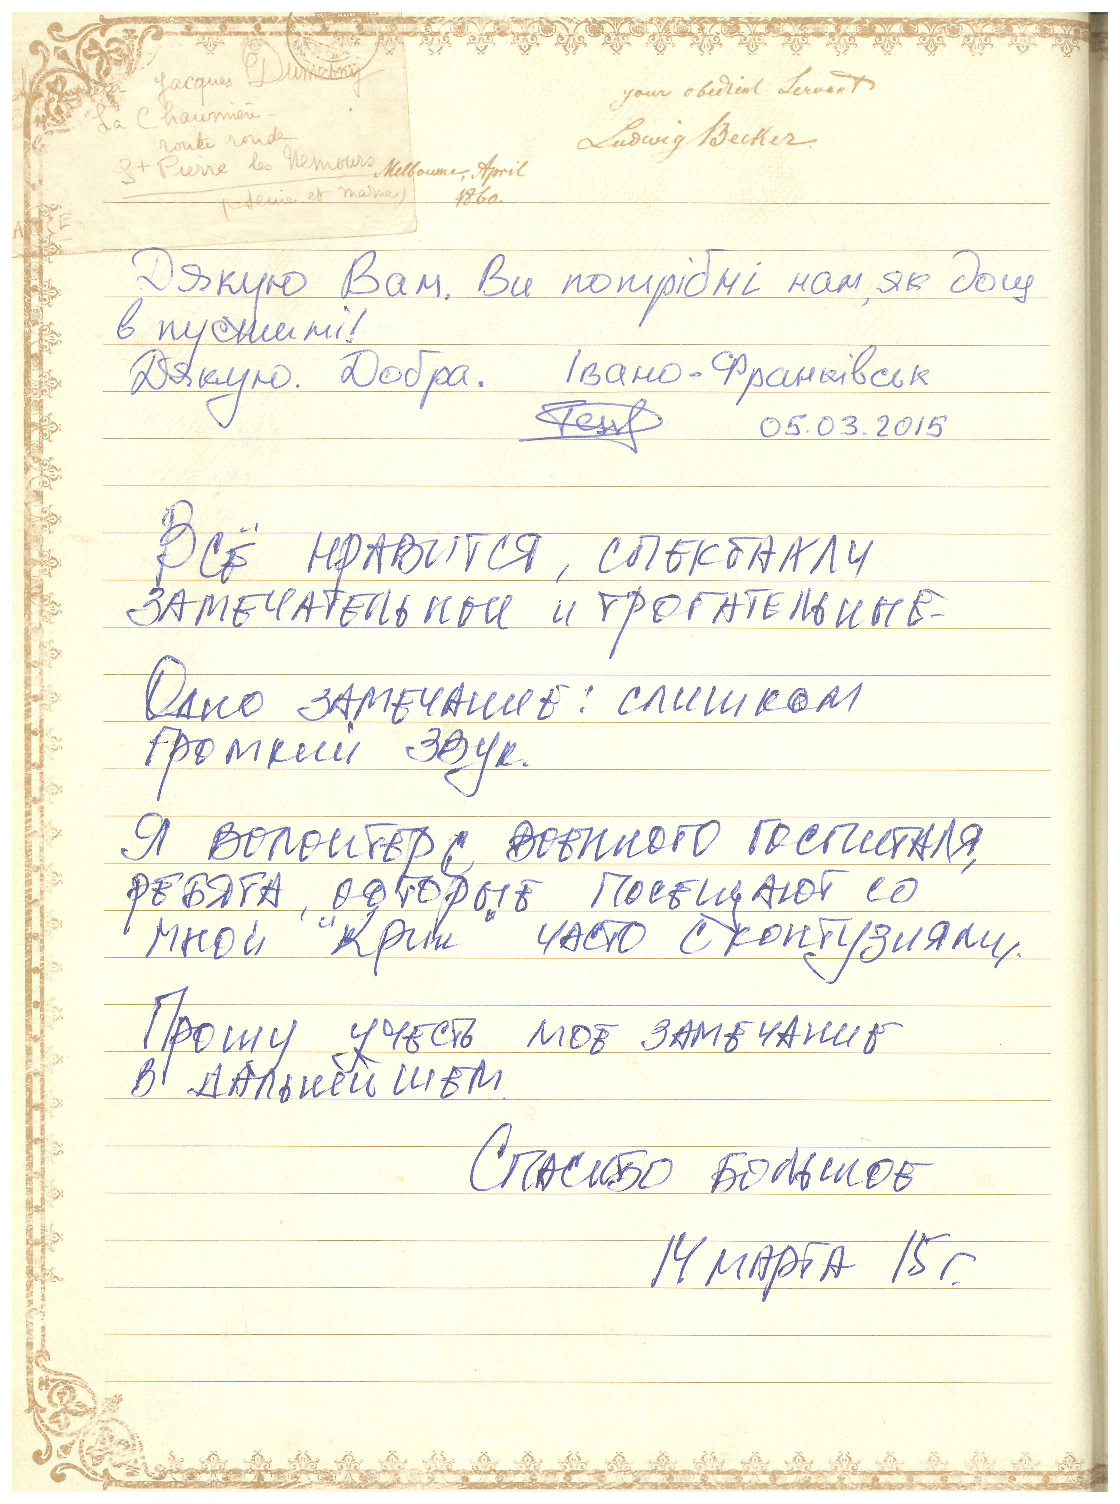 Jacques Dumesny
La Chaumière -
route ronde
St Pierre les Nemours
(Seine et Marne)
your obedient Servant
Ludwig Becker
Melbourne, April
1860.
Дякую Вам. Ви потрібні нам, як дощ
в пустині!
Дякую. Добра. Івано-Франківськ
05.03.2015
Всё нравится, спектакли
замечательные и трогательные-
Одно замечание: слишком
громкий звук.
Я волонтер с военного госпиталя,
ребята, которые посещают со
мной "Крик" часто с контузиями.
Прошу учесть мое замечание
в дальнейшем.
Спасибо большое
14 марта 15 г.